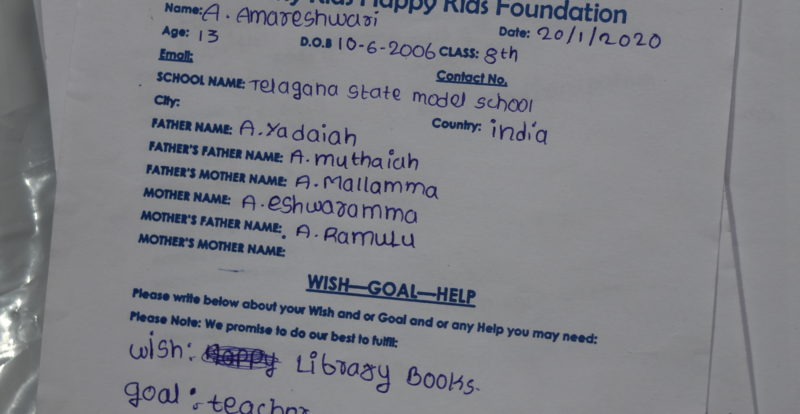 Happy Kids Foundation
Name: A. Amareshwari
Date: 20/1/2020
Age: 13
D.O.B 10-6-2006 CLASS: 8th
Email:
Contact No.
SCHOOL NAME: Telagana state model school
City:
Country: india
FATHER NAME: A. Yadaiah
FATHER'S FATHER NAME: A. muthaiah
FATHER'S MOTHER NAME: A. Mallamma
MOTHER NAME: A. eshwaramma
MOTHER'S FATHER NAME: A. Ramulu
MOTHER'S MOTHER NAME:
WISH—GOAL—HELP
Please write below about your Wish and or Goal and or any Help you may need:
Please Note: We promise to do our best to fulfil:
wish: Library Books.
goal: teacher